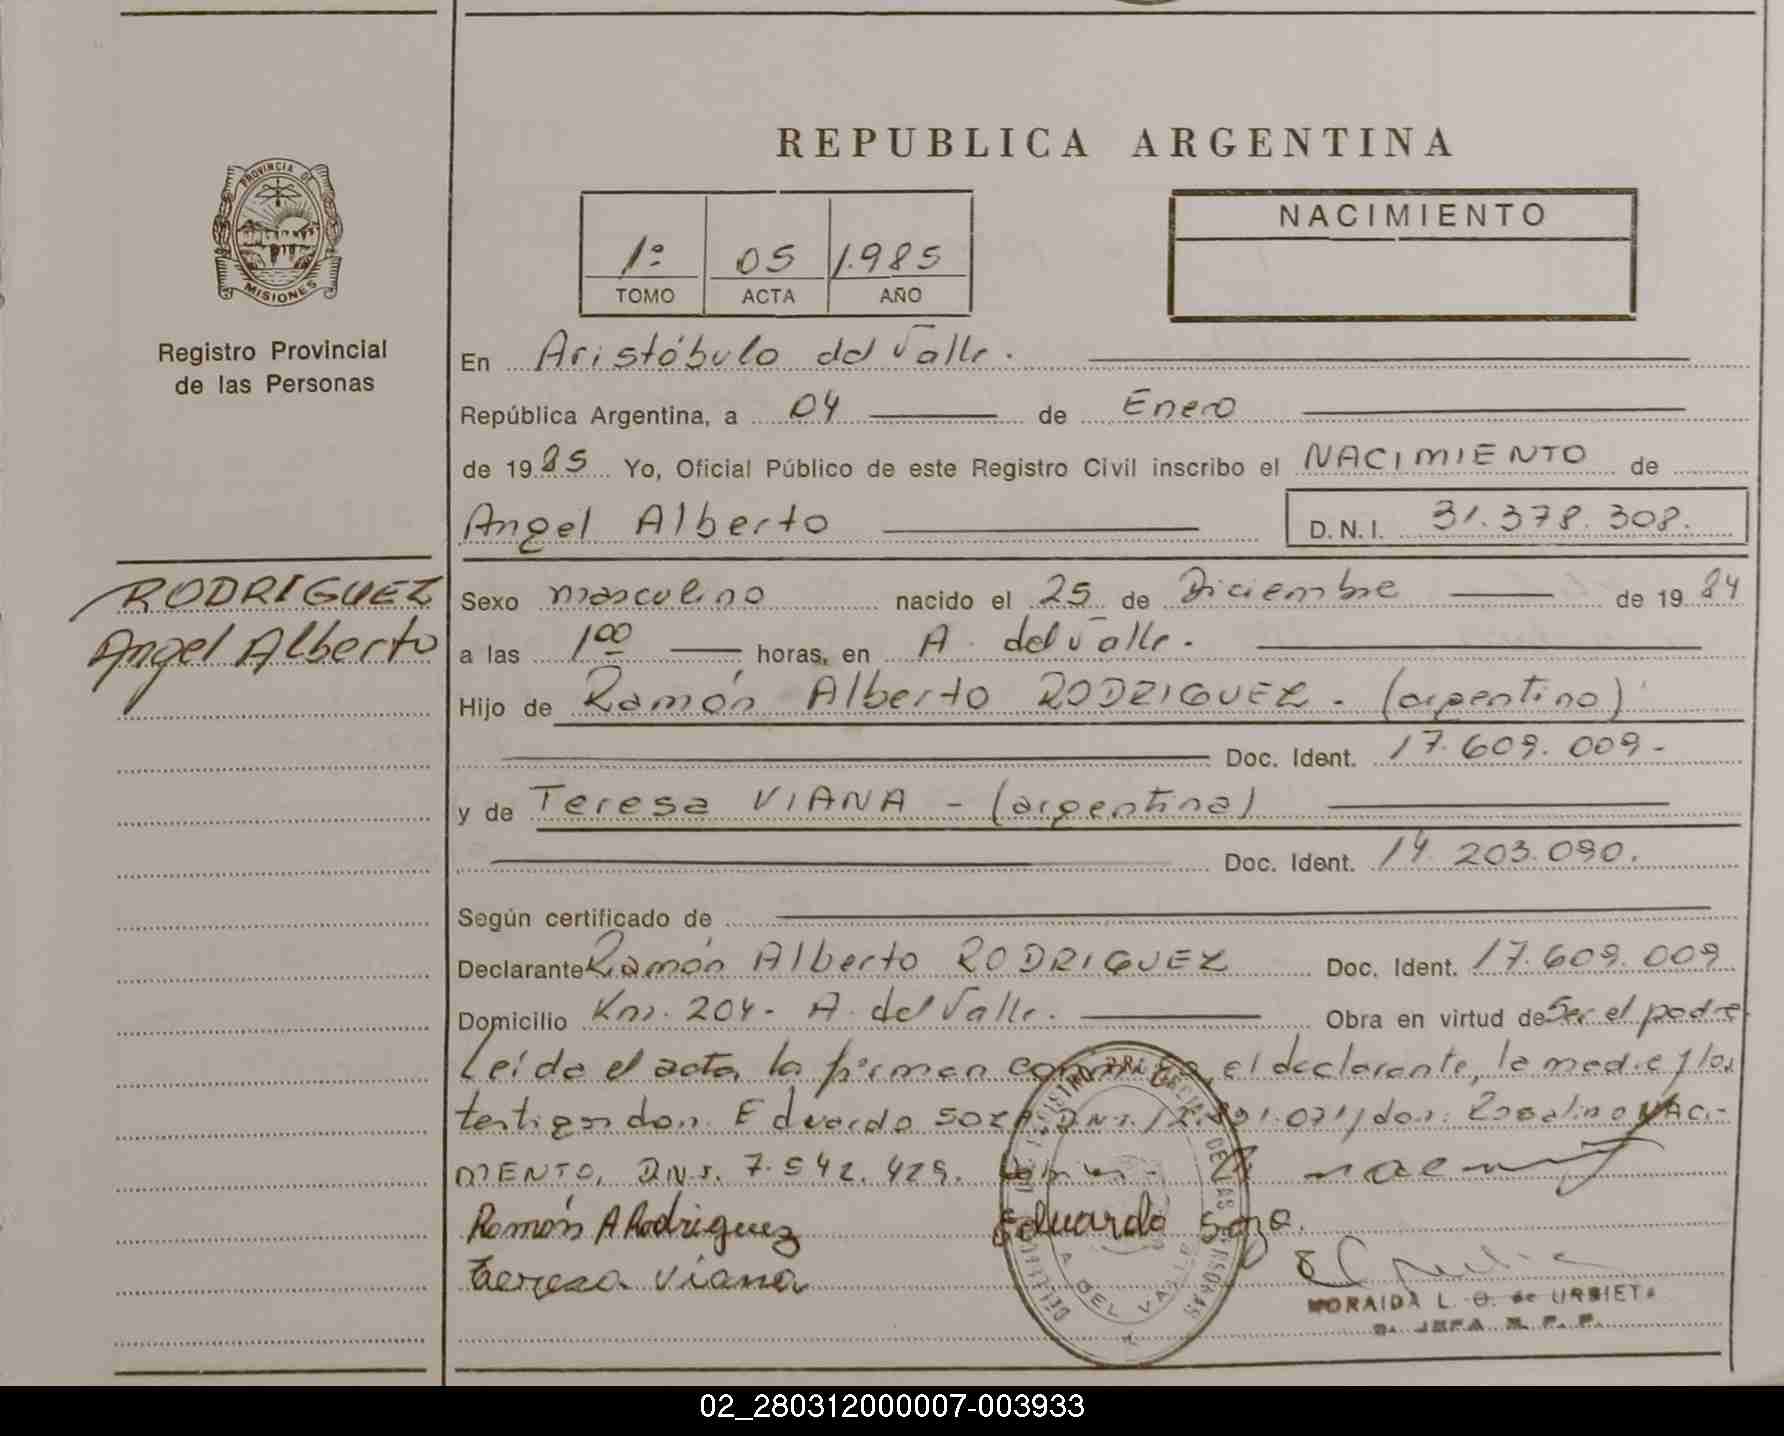 REPUBLICA ARGENTINA
PROVINCIA DE
MISIONES
Registro Provincial
de las Personas
1º 05 1.985
TOMO ACTA AÑO
NACIMIENTO
En Aristóbulo del Valle.
República Argentina, a 04 de Enero
de 1985 Yo, Oficial Público de este Registro Civil inscribo el NACIMIENTO de
Angel Alberto D.N.I. 31.378.308.
RODRIGUEZ
Angel Alberto
Sexo masculino nacido el 25 de Diciembre de 1984
a las 1 00 horas, en A. del Valle.
Hijo de Ramón Alberto RODRIGUEZ. (argentino)
Doc. Ident. 17.609.009.-
y de Teresa VIANA - (argentina)
Doc. Ident. 14.203.090.
Según certificado de
Declarante Ramón Alberto RODRIGUEZ Doc. Ident. 17.609.009
Domicilio Km. 204- A. del Valle. Obra en virtud de Ser el padre
Leída el acta, la firman el declarante, la madre y los
testigos don. Eduardo don: Rosalino NACI-
MENTO, D.N.I. 7.542.429.
Ramón A Rodriguez Eduardo Soza.
Teresa Viana
A DEL VALLE
MORAIDA L. O. de URBIETA
02_280312000007-003933